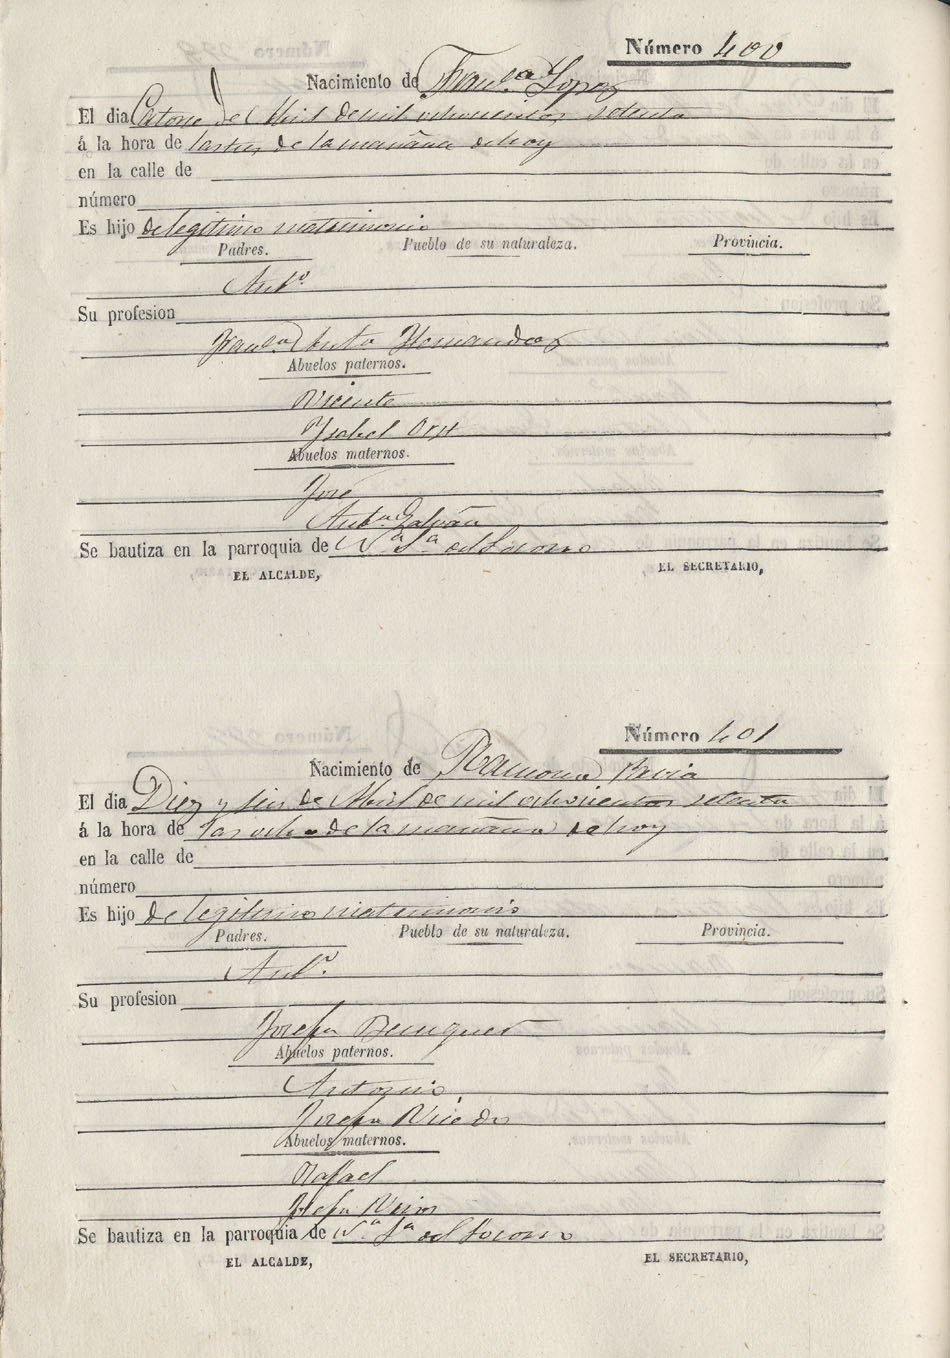 Número 400
Nacimiento de Franca Lopez
El dia Catorce de Abril de mil ochocientos setenta
á la hora de las tres de la mañana de hoy
en la calle de
número
Es hijo de legitimo matrimonio
Padres. Pueblo de su naturaleza. Provincia.
Anto.
Su profesion
Franca Hernandez
Abuelos paternos.
Vicente
Ysabel Orst
Abuelos maternos.
José
Anta Galván
Se bautiza en la parroquia de Na Sa del Socorro
EL ALCALDE, EL SECRETARIO,
Número 401
Nacimiento de Ramona Pavia
El dia Diez y seis de Abril de mil ochocientos setenta
á la hora de las ocho de la mañana de hoy
en la calle de
número
Es hijo de legitimo matrimonio
Padres. Pueblo de su naturaleza. Provincia.
Anto.
Su profesion
Josefa
Abuelos paternos.
Antonio
Josefa
Abuelos maternos.
Rafael
Josefa
Se bautiza en la parroquia de Na Sa del Socorro
EL ALCALDE, EL SECRETARIO,